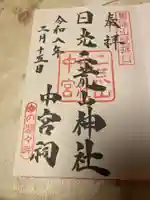 奉拝
日光二荒山神社
中宮祠
二荒山
中宮
令和八年
三月十五日